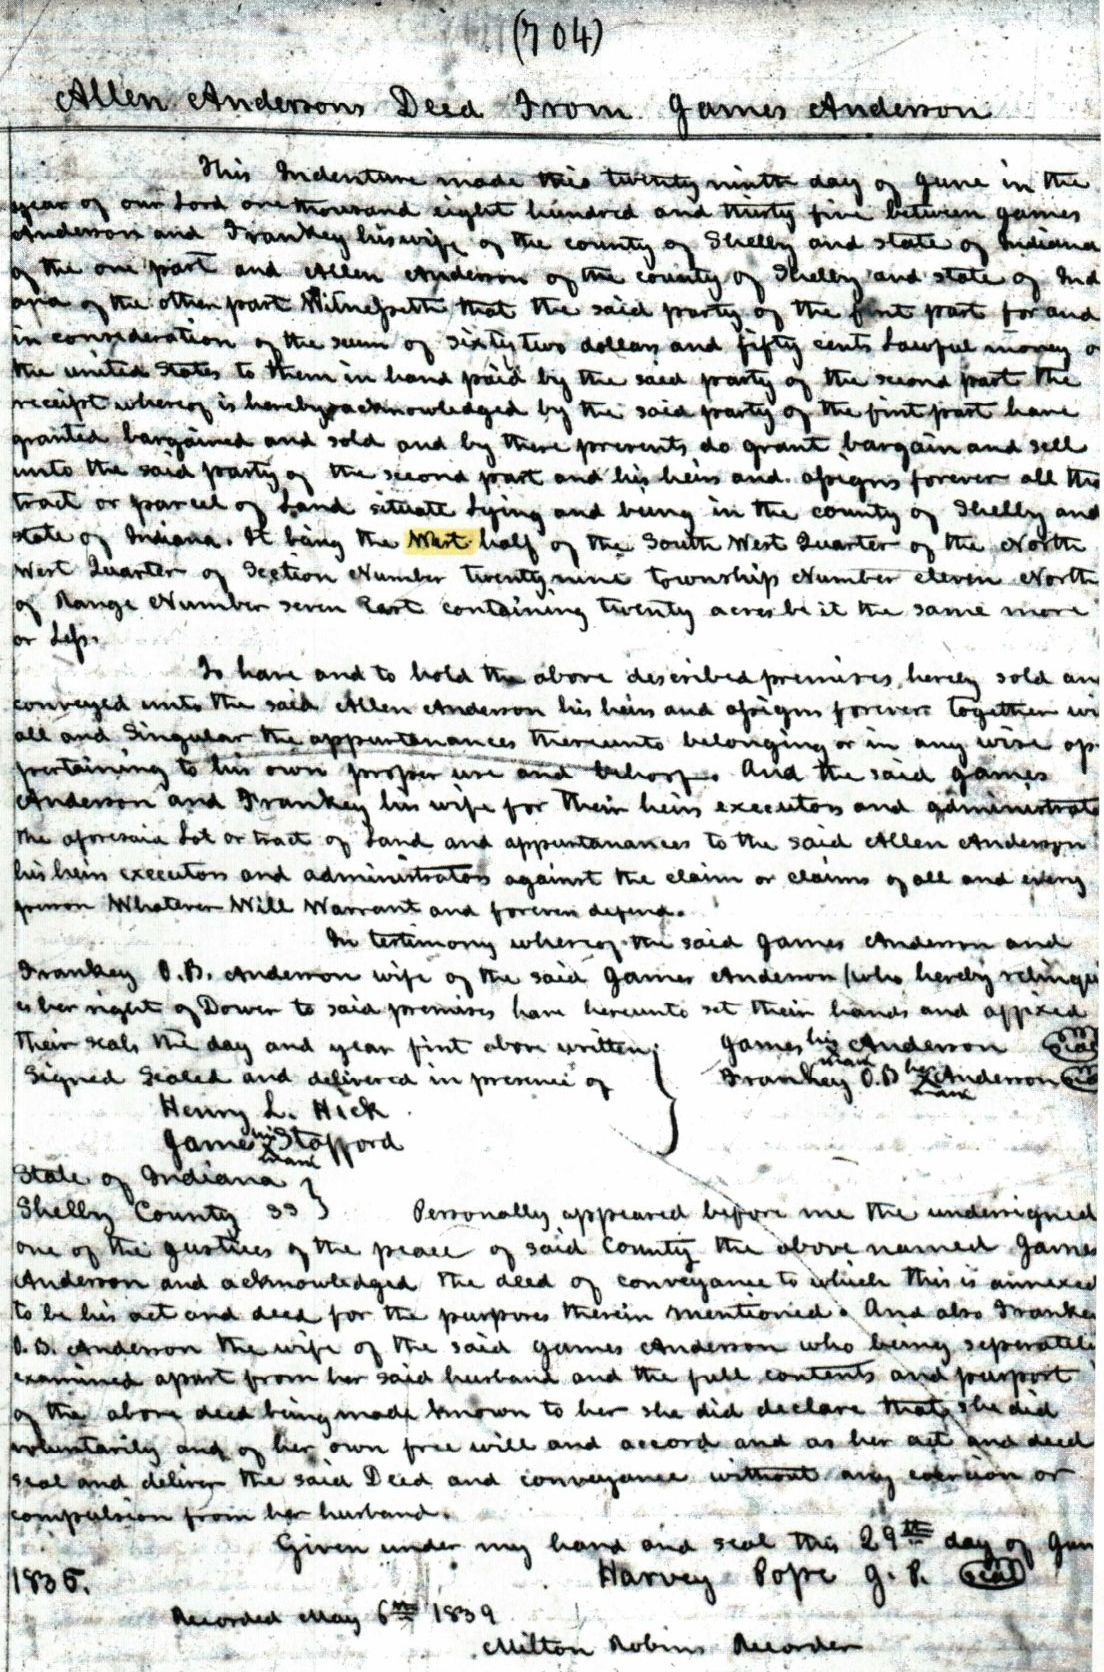 (704)
Allen Andersons Deed From James Anderson
This Indenture made this twenty ninth day of June in the
year of our Lord one thousand eight hundred and thirty five between James
Anderson and Frankey his wife of the county of Shelby and state of Indiana
of the one part and Allen Anderson of the county of Shelby and state of Ind
ana of the other part Witnesseth that the said party of the first part for and
in consideration of the sum of sixty two dollars and fifty cents Lawful money o
the united States to them in hand paid by the said party of the second part the
receipt whereof is hereby acknowledged by the said party of the first part have
granted bargained and sold and by these presents do grant bargain and sell
unto the said party of the second part and his heirs and assigns forever all tha
tract or parcel of Land situate Lying and being in the county of Shelby and
state of Indiana. It being the West half of the South West Quarter of the North
West Quarter of Section Number twenty nine township Number eleven North
of Range Number seven East containing twenty acres be it the same more
or Less.
To have and to hold the above described premises hereby sold an
conveyed unto the said Allen Anderson his heirs and assigns forever together wi
all and Singular the appurtenances thereunto belonging or in any wise ap
pertaining to his own proper use and behoof. And the said James
Anderson and Frankey his wife for their heirs executors and administrato
the aforesaid Lot or tract of Land and appurtanances to the said Allen Anderson
his heirs executors and administrators against the claim or claims of all and every
person Whatever Will Warrant and forever defend.
In testimony whereof the said James Anderson and
Frankey O.B. Anderson wife of the said James Anderson (who hereby relinqui
es her right of Dower to said premises have hereunto set their hands and affixed
their seals the day and year first above written James his Anderson seal
mark
Signed Sealed and delivered in presence of Frankey O.B her x Anderson seal
mark
Henry L. Hick
James his x Stafford
mark
State of Indiana
Shelby County ss Personally appeared before me the undersigned
one of the Justices of the peace of said County the above named James
Anderson and acknowledged the deed of conveyance to which this is annexed
to be his act and deed for the purposes therein mentioned. And also Franke
O.B. Anderson the wife of the said James Anderson who being seperatel
examined apart from her said husband and the full contents and purport
of the above deed being made known to her she did declare that she did
voluntarily and of her own free will and accord and as her act and deed
seal and deliver the said Deed and conveyance without any coercion or
compulsion from her husband.
Given under my hand and seal this 29th day of Jun
1835. Harvey Pope J. P. seal
Recorded May 6th 1839
Milton Robins Recorder